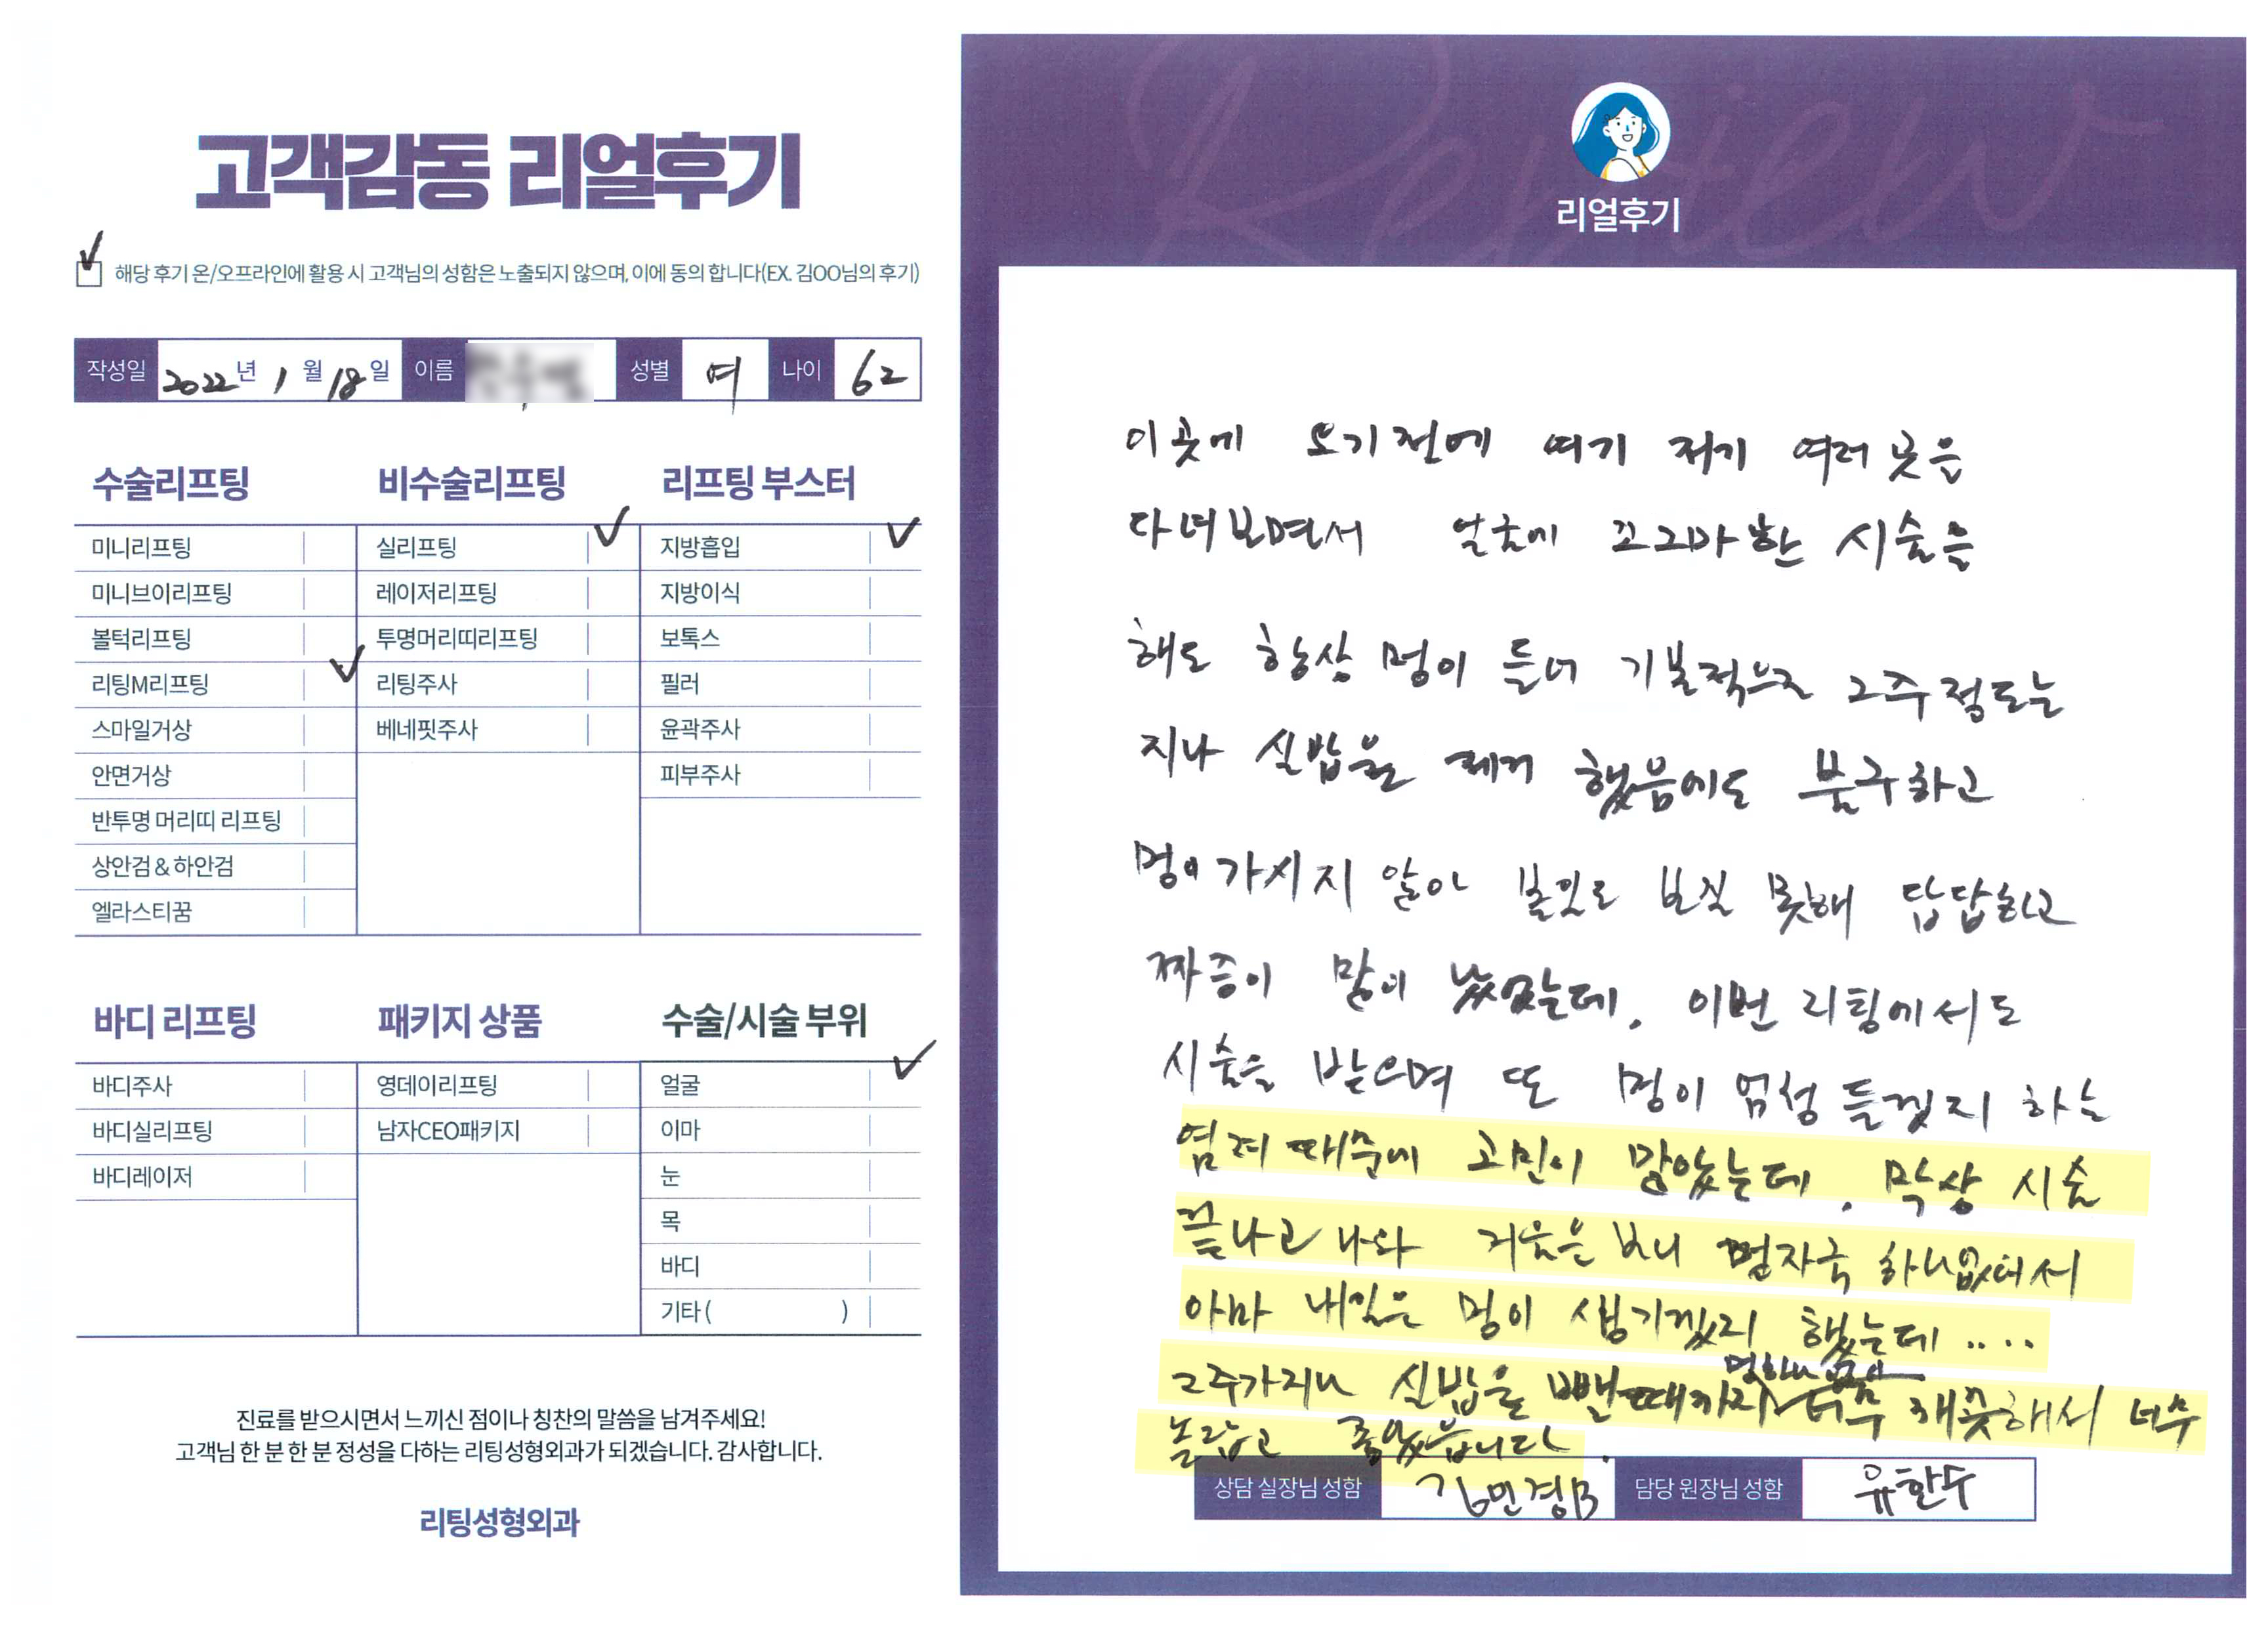 고객감동 리얼후기
해당 후기 온/오프라인에 활용 시 고객님의 성함은 노출되지 않으며, 이에 동의 합니다(EX. 김OO님의 후기)
작성일 2022년 1월 18일 이름 성별 여 나이 62
수술리프팅
미니리프팅
미니브이리프팅
볼턱리프팅
리팅M리프팅
스마일거상
안면거상
반투명 머리띠 리프팅
상안검 & 하안검
엘라스티꿈
비수술리프팅
실리프팅
레이저리프팅
투명머리띠리프팅
리팅주사
베네핏주사
리프팅 부스터
지방흡입
지방이식
보톡스
필러
윤곽주사
피부주사
바디 리프팅
바디주사
바디실리프팅
바디레이저
패키지 상품
영데이리프팅
남자CEO패키지
수술/시술 부위
얼굴
이마
눈
목
바디
기타 ( )
진료를 받으시면서 느끼신 점이나 칭찬의 말씀을 남겨주세요!
고객님 한 분 한 분 정성을 다하는 리팅성형외과가 되겠습니다. 감사합니다.
리팅성형외과
Review
리얼후기
이곳에 오기전에 여기 저기 여러 곳은
다녀보면서 얼굴에 꼬그마한 시술을
해도 항상 멍이 들어 기본적으로 2주정도는
지나 실밥을 제거 했음에도 불구하고
멍이 가시지 않아 볼일도 보질 못해 답답하고
짜증이 많이 났었는데, 이번 리팅에서도
시술을 받으며 또 멍이 엄청 들겠지 하는
염려 때문에 고민이 많았는데, 막상 시술
끝나고 나와 거울은 보니 멍자국 하나없어서
아마 내일은 멍이 생기겠지 했는데 ....
2주가지나 실밥을 뺄때까지 멍하나 없이 깨끗해서 너무
놀랍고 좋았습니다.
상담 실장님 성함 김민경B 담당 원장님 성함 유한두